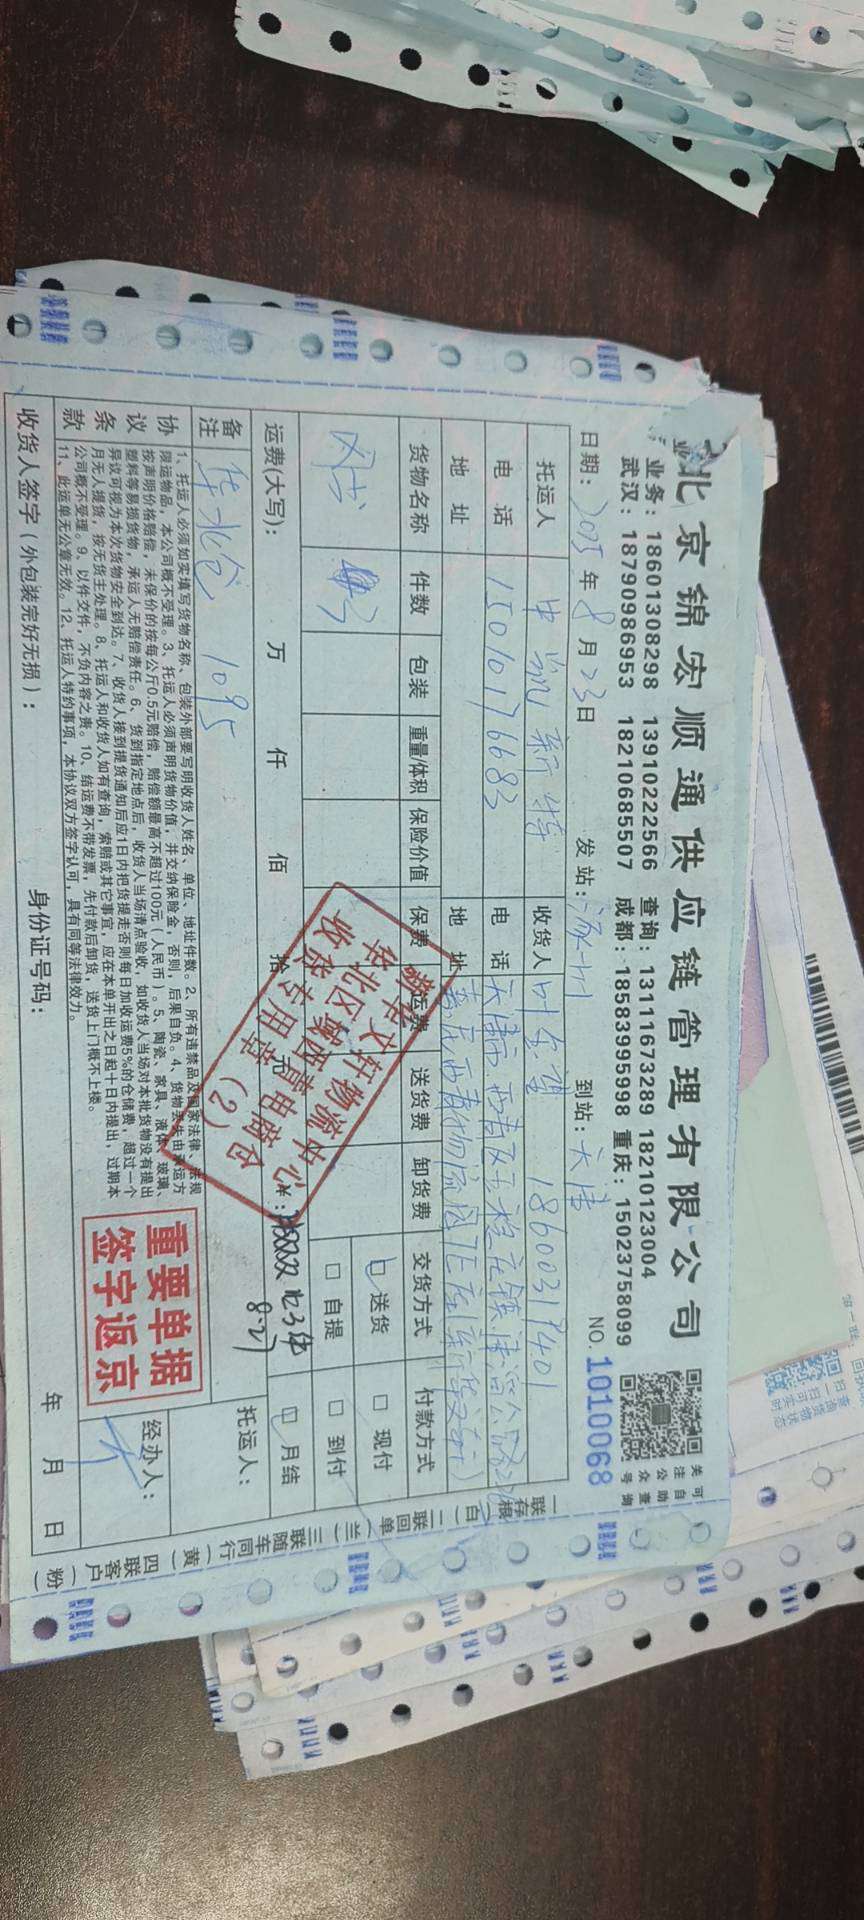 北京锦宏顺通供应链管理有限公司
业务：18601308298 13910222566 查询：13111673289 18210123004
武汉：18790986953 18210685507 成都：18583995998 重庆：15023758099
关注公众号
可自助查询
日期：2025年8月23日 发站：涿州 到站：天津 NO.1010068
托运人 中航新特 收货人 叶 18600319401
电话 15010176683 电话 天津市西青区
地址 地址
货物名称 件数 包装 重量/体积 保险价值 保费 运费 送货费 卸货费 交货方式 付款方式
图书
送货 现付
自提 到付
月结
运费(大写)： 万 仟 佰 拾 元 ¥：
8.27
备注 华北仓 1095
托运人：
经办人：
协议条款
1、托运人必须如实填写货物名称、包装外部要写明收货人姓名、单位、地址件数。2、所有违禁品及国家法律、法规
限运物品，本公司概不受理。3、托运人必须声明货物价值，并交纳保险金，否则，后果自负。4、货物丢失由承运方
按声明价格赔偿，未保价的按每公斤0.5元赔偿，赔偿额最高不超过100元（人民币）。5、陶瓷、家具、液体、玻璃、
塑料等易损货物，承运人无赔偿责任。6、货到指定地点后，收货人当场清点验收，如收货人当场对本批货物没有提出
异议可视为本次货物安全到达。7、收货人接到提货通知后应1日内把货提走否则每日加收运费5%的仓储费，超过一个
月无人提货，按无货主处理。8、托运人和收货人如有查询，索赔或其它事宜，应在本单开出之日起十日内提出，过期本
公司概不受理。9、以件交件，不负内容之责。10、结运费不带发票，先付款后卸货，送货上门概不上楼。
11、此运单无公章无效。12、托运人特约事项，本协议双方签字认可，具有同等法律效力。
收货人签字（外包装完好无损）： 身份证号码： 年 月 日
新华文轩物流中心
华北区域西青电商仓
收货专用章
(2)
重要单据
签字返京
一联存根（白）二联回单（兰）三联随车同行（黄）四联客户（粉）